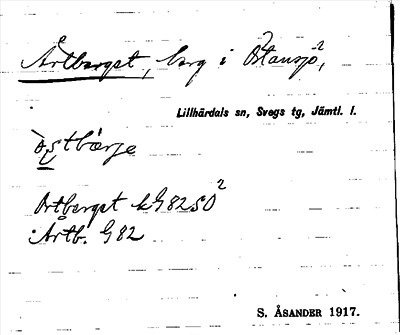 Årtberget, berg i Östansjö²,
Lillhärdals sn, Svegs tg, Jämtl. l.
Ortberget kG82SO²
Årtb. G82
S. ÅSANDER 1917.